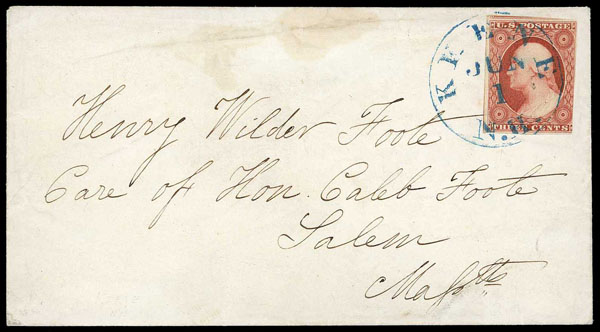 U.S. POSTAGE
THREE CENTS
KEENE
JUN
1
N.H.
Henry Wilder Foote
Care of Hon. Caleb Foote
Salem
Maſstts